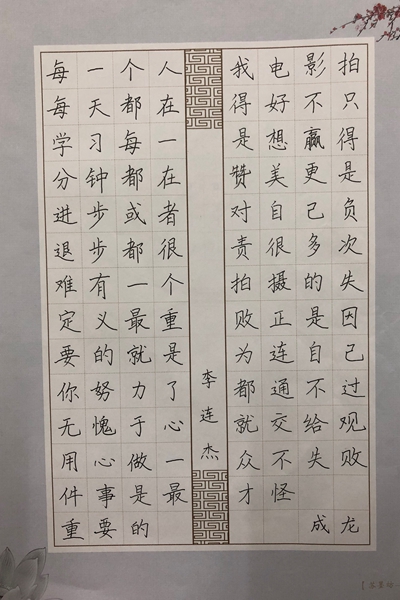 每一个人
每天都在
学习每一
分钟都在
进步或者
退步都很
难有一个
定义最重
要的就是
你努力了
无愧于心
用心做一
件事是最
重要的
李连杰
我电影拍
得好不只
是想赢得
赞美更是
对自己负
责很多次
拍摄的失
败正是因
为连自己
都通不过
就交给观
众不失败
才怪
成龙